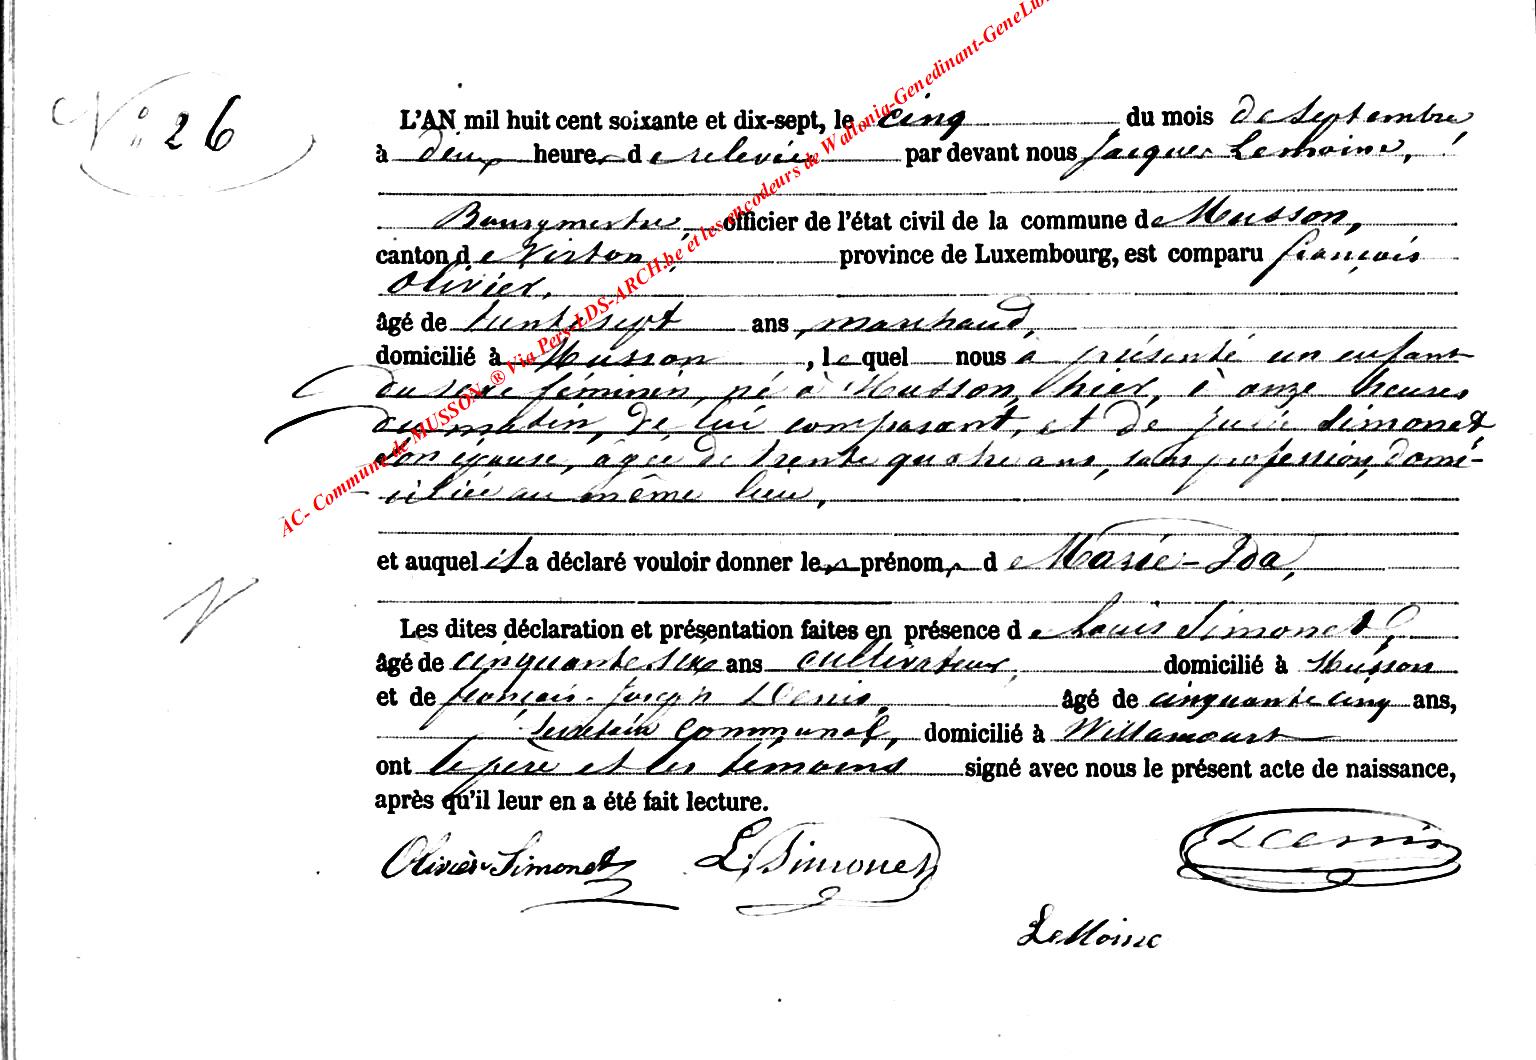 N° 26
L'AN mil huit cent soixante et dix-sept, le cinq du mois de Septembre
à deux heures de relevée par devant nous Jacques Lemoine,
Bourgmestre, officier de l'état civil de la commune de Musson,
canton de Virton province de Luxembourg, est comparu françois
Olivier,
âgé de trente sept ans, marchand,
domicilié à Musson, lequel nous à présenté un enfant
du sexe féminin, né à Musson, hier, à onze heures
du matin, de lui comparant, et de Julie Simonet
son épouse, âgée de trente quatre ans, sans profession, domi-
ciliée au même lieu,
et auquel il a déclaré vouloir donner les prénoms de Marie-Ida,
Les dites déclaration et présentation faites en présence de Louis Simonet,
âgé de cinquante six ans cultivateur, domicilié à Musson
et de françois-Joseph Denis, âgé de cinquante cinq ans,
Secrétaire communal, domicilié à Willancourt
ont le père et les témoins signé avec nous le présent acte de naissance,
après qu'il leur en a été fait lecture.
Olivier Simonet L. Simonet Denis
LeMoine
AC- Commune de MUSSON ® Via Pers-LDS-ARCH.be et les encodeurs de Wallonia-Genedinant-GeneLux